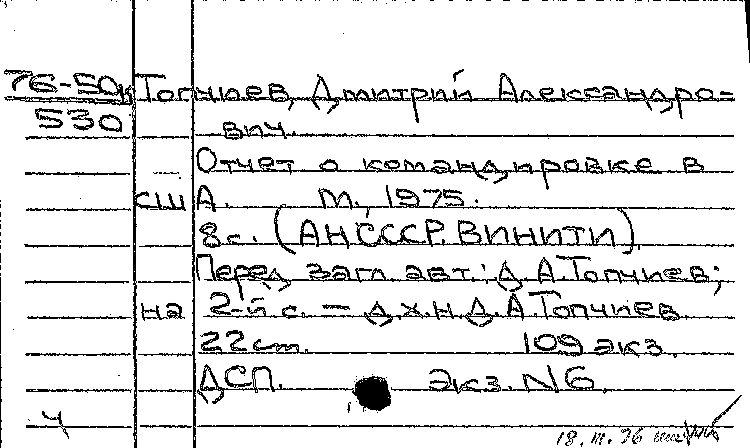 76-50к Топчиев, Дмитрий Александро-
530 вич.
Отчет о командировке в
США. М., 1975.
8 с. (АН СССР. ВИНИТИ).
Перед загл. авт.: Д. А. Топчиев;
на 2-й с. — д. х. н. Д. А. Топчиев
22 см. 109 экз.
ДСП. Экз. N6.
Ч
18. III. 76